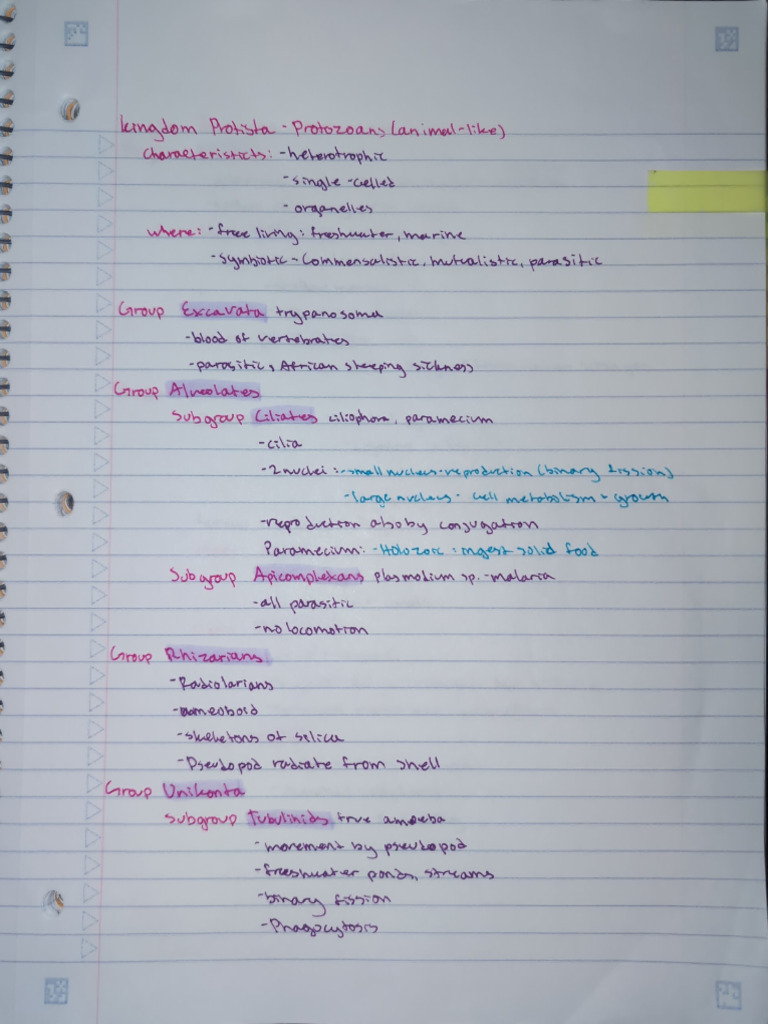 kingdom Protista - Protozoans (animal-like)
characteristicts: - heterotrophic
- single-celled
- organelles
where: - free living: freshwater, marine
- symbiotic - commensalistic, mutualistic, parasitic
Group Excavata trypanosoma
- blood of vertebrates
- parasitic, African sleeping sickness
Group Alveolates
Subgroup Ciliates ciliophora, paramecium
- cilia
- 2 nuclei: - small nucleus - reproduction (binary fission)
- large nucleus - cell metabolism + growth
- reproduction also by conjugation
Paramecium: - Holozoic: ingest solid food
Subgroup Apicomplexans plasmodium sp. - malaria
- all parasitic
- no locomotion
Group Rhizarians
- Radiolarians
- ameoboid
- skeletons of silica
- Pseudopod radiate from shell
Group Unikonta
Subgroup Tubulinids true amoeba
- movement by pseudopod
- freshwater ponds, streams
- binary fission
- Phagocytosis